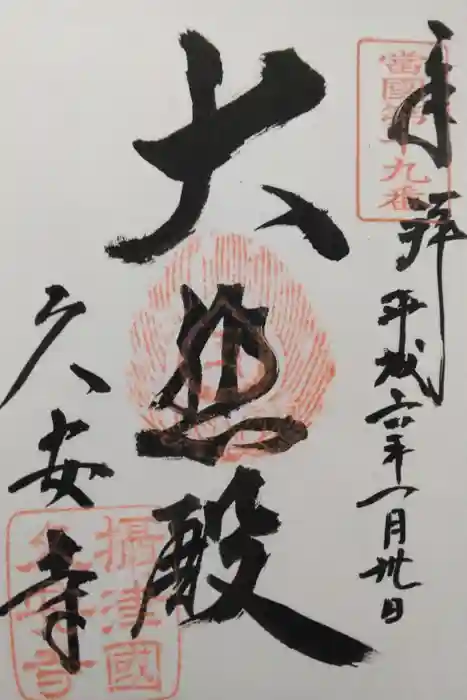 奉拝
當國第十九番
平成六年一月卅日
大悲殿
久安寺
攝津國
久安寺